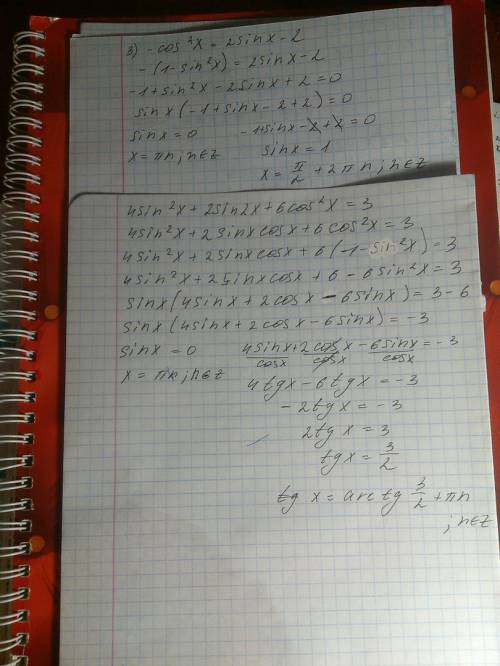 3) -cos²x = 2sinx - 2
-(1-sin²x) = 2sinx - 2
-1+sin²x - 2sinx + 2 = 0
sinx(-1+sinx-2+2) = 0
sinx = 0 -1+sinx-2+2 = 0
x = πn; n∈Z sinx = 1
x = π/2 + 2πn; n∈Z
4sin²x + 2sin2x + 6cos²x = 3
4sin²x + 2sinxcosx + 6cos²x = 3
4sin²x + 2sinxcosx + 6(1-sin²x) = 3
4sin²x + 2sinxcosx + 6 - 6sin²x = 3
sinx(4sinx + 2cosx - 6sinx) = 3-6
sinx(4sinx + 2cosx - 6sinx) = -3
sinx = 0 4sinx/cosx + 2cosx/cosx - 6sinx/cosx = -3
x = πn; n∈Z 4tgx - 6tgx = -3
-2tgx = -3
2tgx = 3
tgx = 3/2
tg x = arctg 3/2 + πn
; n∈Z